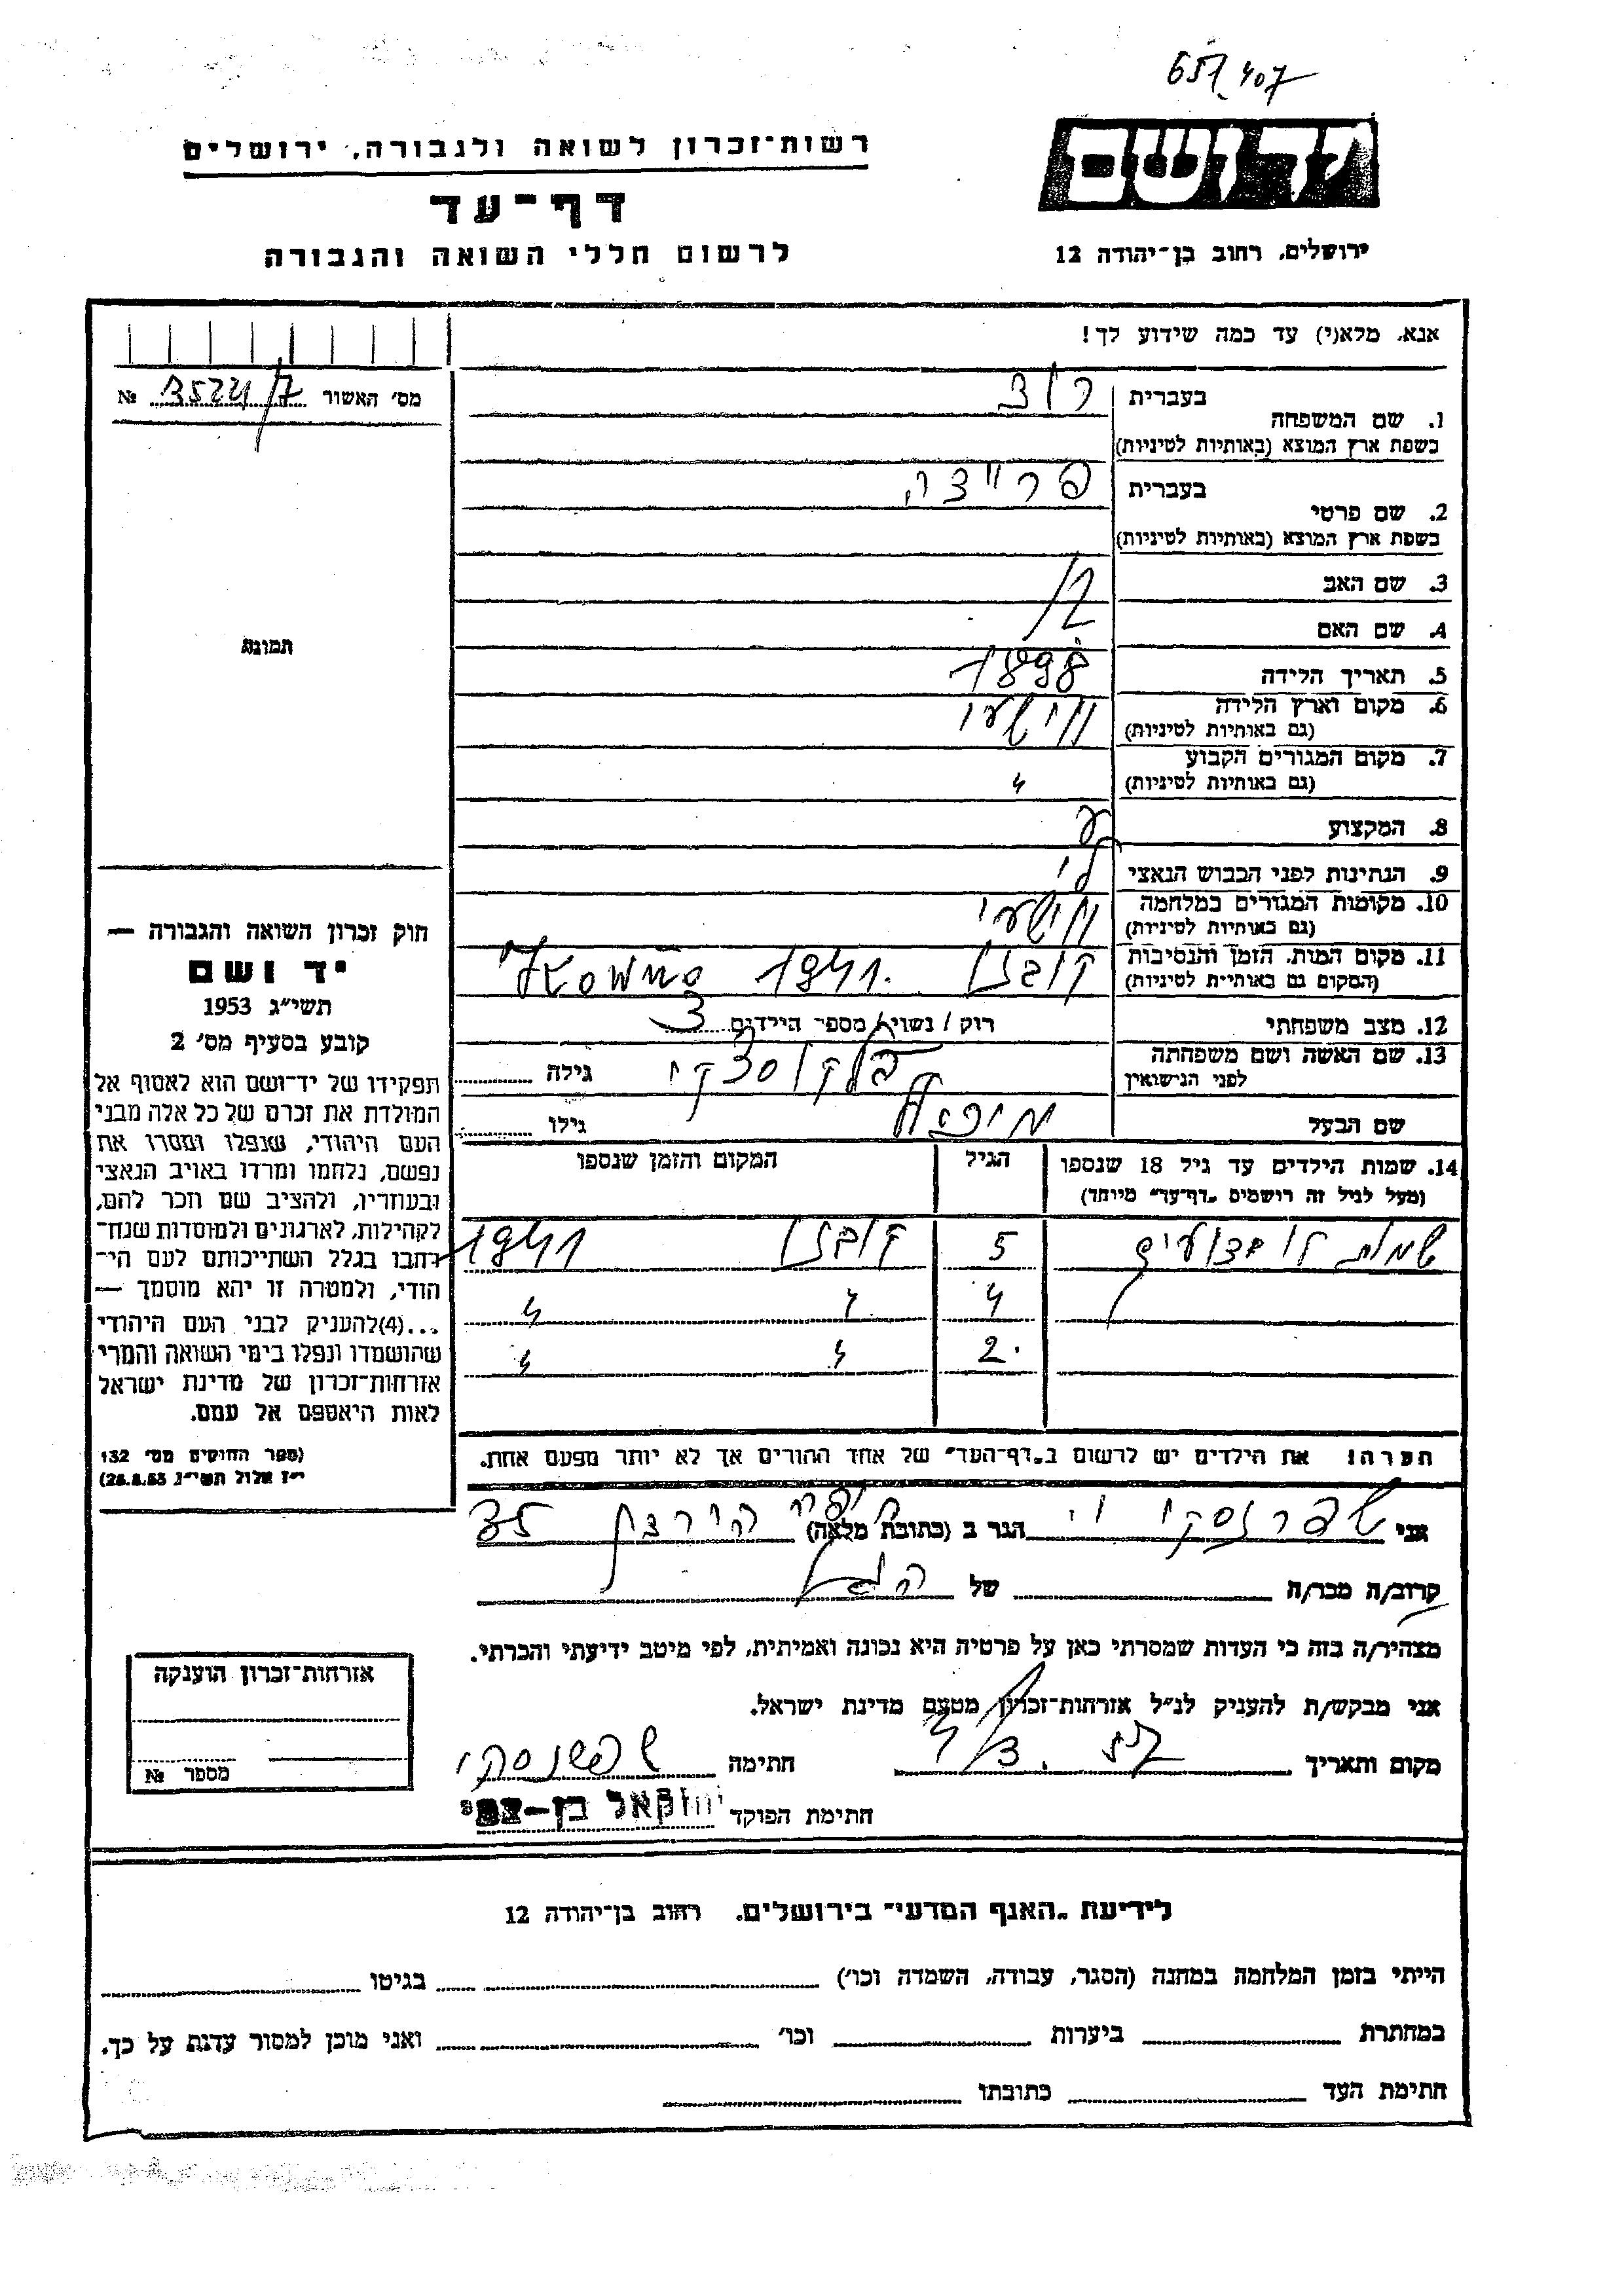 רשות־זכרון לשואה ולגבורה, ירושלים
דף־עד
לרשום חללי השואה והגבורה
יד ושם
ירושלים, רחוב בן־יהודה 12
אנא, מלא(י) עד כמה שידוע לך!
מס׳ האשור №
1. שם המשפחה
בעברית
בשפת ארץ המוצא (באותיות לטיניות)
2. שם פרטי
בעברית פרייצה
בשפת ארץ המוצא (באותיות לטיניות)
3. שם האב
4. שם האם
5. תאריך הלידה 1898
6. מקום וארץ הלידה
(גם באותיות לטיניות)
7. מקום המגורים הקבוע
(גם באותיות לטיניות) 〃
8. המקצוע
9. הנתינות לפני הכבוש הנאצי
10. מקומות המגורים במלחמה
(גם באותיות לטיניות)
11. מקום המות, הזמן והנסיבות קובנו 1941. Kowno
(המקום גם באותיות לטיניות)
12. מצב משפחתי רוק / נשוי / מספר הילדים 3
13. שם האשה ושם משפחתה
לפני הנישואין גילה
שם הבעל גילו
14. שמות הילדים עד גיל 18 שנספו הגיל המקום והזמן שנספו
(מעל לגיל זה רושמים „דף־עד״ מיוחד)
שמות לא ידועים 5 קובנו 1941
4 〃 〃
2. 〃 〃
הערה! את הילדים יש לרשום ב„דף־העד״ של אחד ההורים אך לא יותר מפעם אחת.
תמונה
חוק זכרון השואה והגבורה —
יד ושם
תשי״ג 1953
קובע בסעיף מס׳ 2
תפקידו של יד־ושם הוא לאסוף אל
המולדת את זכרם של כל אלה מבני
העם היהודי, שנפלו ומסרו את
נפשם, נלחמו ומרדו באויב הנאצי
ובעוזריו, ולהציב שם וזכר להם,
לקהילות, לארגונים ולמוסדות שנח־
רבו בגלל השתייכותם לעם הי־
הודי, ולמטרה זו יהא מוסמך —
...(4)להעניק לבני העם היהודי
שהושמדו ונפלו בימי השואה והמרי
אזרחות־זכרון של מדינת ישראל
לאות היאספם אל עמם.
(ספר החוקים מס׳ 132
י״ז אלול תשי״ג 28.8.53)
אני הגר ב (כתובת מלאה) חיפה הורצל
קרוב/ה מכר/ה של
מצהיר/ה בזה כי העדות שמסרתי כאן על פרטיה היא נכונה ואמיתית, לפי מיטב ידיעתי והכרתי.
אני מבקש/ת להעניק לנ״ל אזרחות־זכרון מטעם מדינת ישראל.
מקום ותאריך חתימה
חתימת הפוקד
אזרחות־זכרון הוענקה
מספר №
לידיעת „האגף המדעי״ בירושלים, רחוב בן־יהודה 12
הייתי בזמן המלחמה במחנה (הסגר, עבודה, השמדה וכו׳) בגיטו
במחתרת ביערות וכו׳ ואני מוכן למסור עדות על כך.
חתימת העד כתובתו